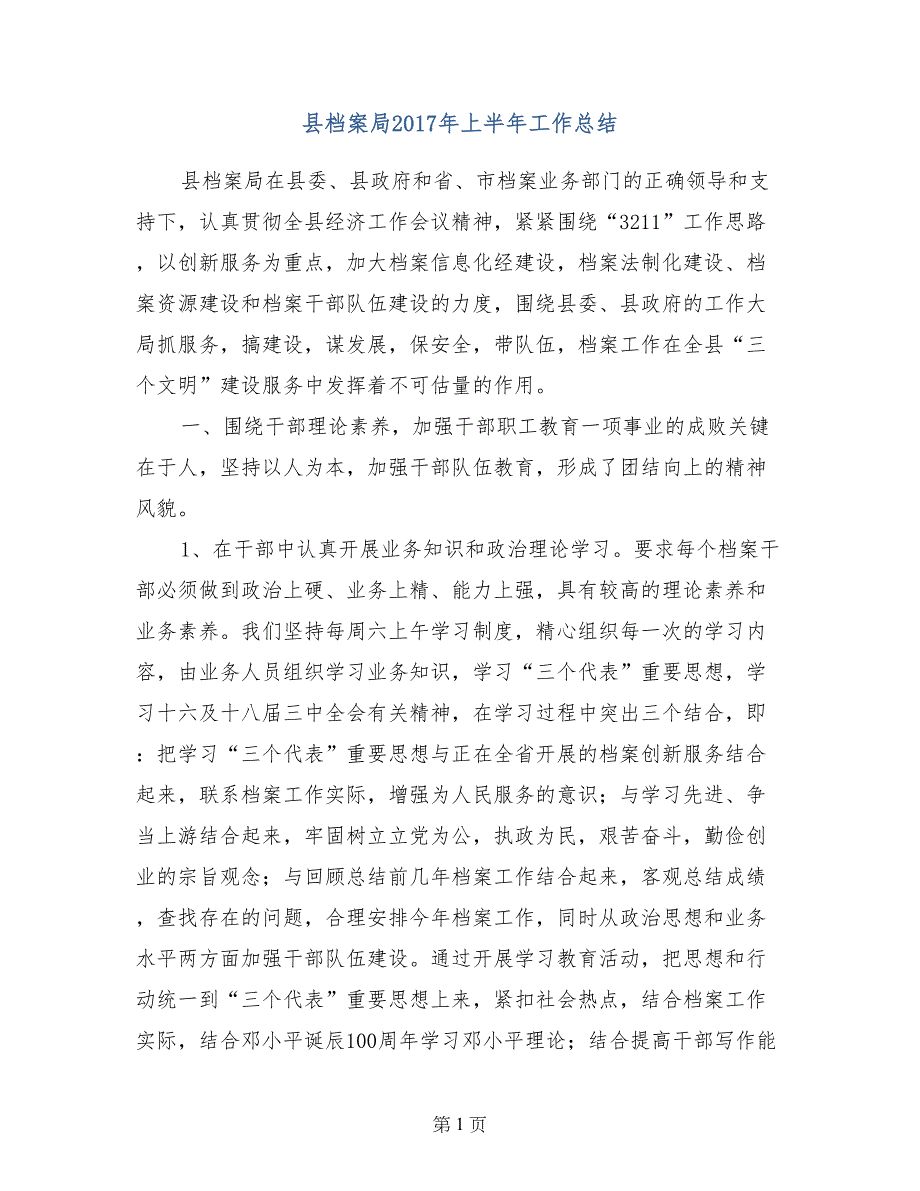 县档案局2017年上半年工作总结
县档案局在县委、县政府和省、市档案业务部门的正确领导和支
持下，认真贯彻全县经济工作会议精神，紧紧围绕“3211”工作思路
，以创新服务为重点，加大档案信息化经建设，档案法制化建设、档
案资源建设和档案干部队伍建设的力度，围绕县委、县政府的工作大
局抓服务，搞建设，谋发展，保安全，带队伍，档案工作在全县“三
个文明”建设服务中发挥着不可估量的作用。
一、围绕干部理论素养，加强干部职工教育一项事业的成败关键
在于人，坚持以人为本，加强干部队伍教育，形成了团结向上的精神
风貌。
1、在干部中认真开展业务知识和政治理论学习。要求每个档案干
部必须做到政治上硬、业务上精、能力上强，具有较高的理论素养和
业务素养。我们坚持每周六上午学习制度，精心组织每一次的学习内
容，由业务人员组织学习业务知识，学习“三个代表”重要思想，学
习十六及十八届三中全会有关精神，在学习过程中突出三个结合，即
：把学习“三个代表”重要思想与正在全省开展的档案创新服务结合
起来，联系档案工作实际，增强为人民服务的意识；与学习先进、争
当上游结合起来，牢固树立立党为公，执政为民，艰苦奋斗，勤俭创
业的宗旨观念；与回顾总结前几年档案工作结合起来，客观总结成绩
，查找存在的问题，合理安排今年档案工作，同时从政治思想和业务
水平两方面加强干部队伍建设。通过开展学习教育活动，把思想和行
动统一到“三个代表”重要思想上来，紧扣社会热点，结合档案工作
实际，结合邓小平诞辰100周年学习邓小平理论；结合提高干部写作能
第 1 页